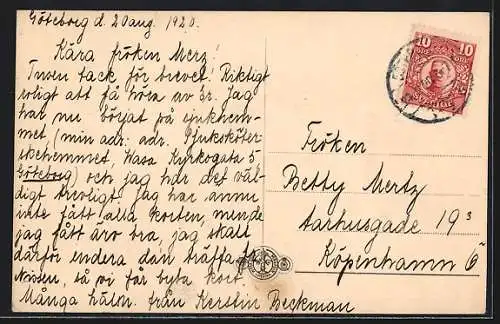 Göteborg d. 20 aug. 1920.
Kära fröken Merz!
Tusen tack för brevet. Riktigt
roligt att få höra av Er. Jag
har nu börjat på sjukhem-
met, (min adr. adr. Sjuksköter-
skehemmet, Wasa Kyrkogata 5
Göteborg) och jag har det väl-
digt trevligt. Jag har ännu
inte fått alla korten, men de
jag fått äro bra, jag skall
därför sända dem
så vi får byta kort.
Många häls. från Kerstin Beckman
10 10
ÖRE ÖRE
SVERIGE
Fröken
Betty Mertz
Aarhusgade 19³
Köpenhamn Ö